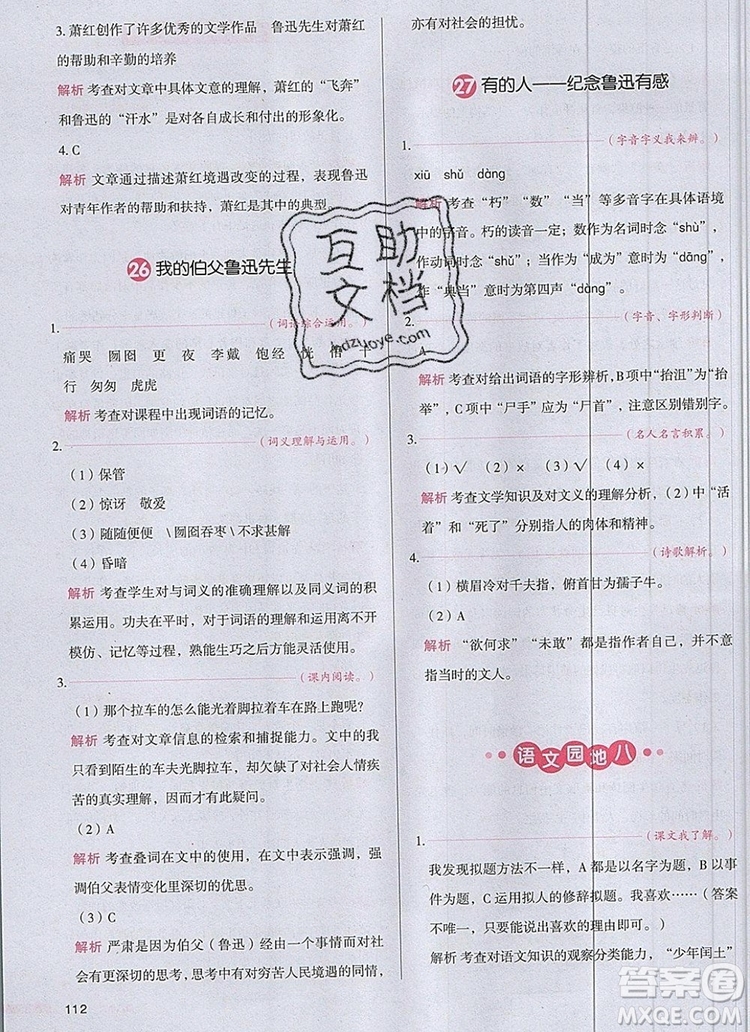 3. 萧红创作了许多优秀的文学作品　鲁迅先生对萧红
的帮助和辛勤的培养
解析 考查对文章中具体文意的理解，萧红的“飞奔”
和鲁迅的“汗水”是对各自成长和付出的形象化。
4. C
解析 文章通过描述萧红境遇改变的过程，表现鲁迅
对青年作者的帮助和扶持，萧红是其中的典型。
26 我的伯父鲁迅先生
1.
(词语综合运用。)
痛哭　囫囵　更　夜　李戴　饱经
行　匆匆　虎虎
解析 考查对课程中出现词语的记忆。
2.
(词义理解与运用。)
（1）保管
（2）惊讶　敬爱
（3）随随便便　\ 囫囵吞枣 \ 不求甚解
（4）昏暗
解析 考查学生对与词义的准确理解以及同义词的积
累运用。功夫在平时，对于词语的理解、运用离不开
模仿、记忆等过程，熟能生巧之后方能灵活运用。
3.
(课内阅读。)
（1）那个拉车的怎么能光着脚拉着车在路上跑呢？
解析 考查对文章信息的检索和捕捉能力。文中的我
只看到陌生的车夫光脚拉车，却欠缺了对社会人情疾
苦的真实理解，因此才有此疑问。
（2）A
解析 考查叠词在文中的使用，在文中表示强调，强调
伯父表情变化里深切的优思。
（3）C
解析 严肃是因为伯父（鲁迅）经由一个事情而对社
会有更深切的思考，不仅有贫苦人民境遇的同情，
112
亦有对社会的担忧。
27 有的人——纪念鲁迅有感
1.
(字音字义我来辨。)
xiǔ　shǔ　dàng
解析 考查“朽”“数”“当”等多音字在具体语境
中的字音。朽的读音一定；数作为名词时念“shù”，
作动词时念“shǔ”；当作为动词时意为“dāng”，
作“典当”意时为第四声“dàng”。
2.
(字音、字形判断)
A
解析 考查对给出词语的字形辨析，B项“抬沮”为“抬
举”，C项中“尸手”应为“尸首”，注意区别字形。
3.
(名人名言积累。)
（1）√　（2）×　（3）√　（4）×
解析 考查文学知识及对文义的理解分析，（2）中“活
着”和“死了”分别指人的肉体和精神。
4.
(诗歌解析。)
（1）横眉冷对千夫指，俯首甘为孺子牛。
（2）A
解析 “欲何求”“未敢”都是指作者自己，并不意
指当时的文人。
语文园地八
1.
(课文我了解。)
我发现拟题方法不一样，A是以名字为题，B以事
件为题，C运用拟人的修辞拟题。我喜欢……（答案
不唯一，只要写出喜欢的理由即可）
解析 考查对语文知识的观察分类能力，“少年闰土”
互助
文档
hdzuoye.com
答案圈
MXQE.COM